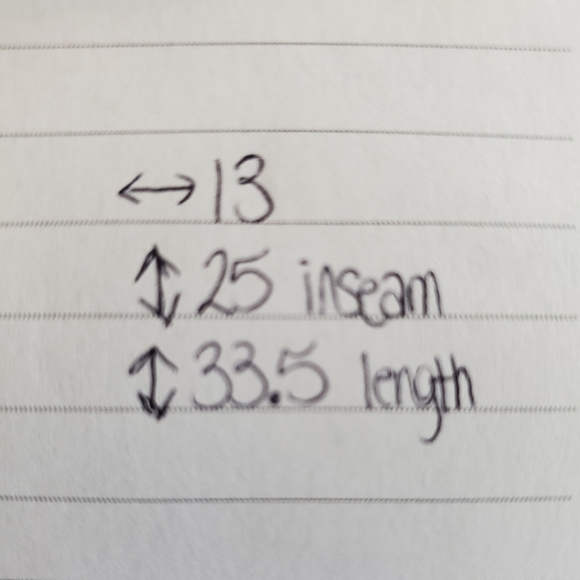 ↔ 13
↕ 25 inseam
↕ 33.5 length